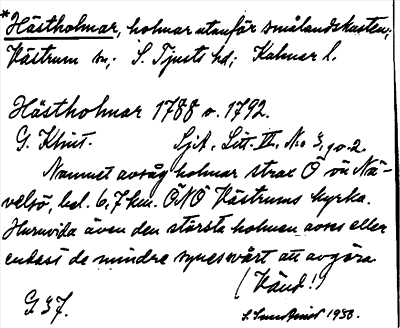 *Hästholmar, holmar utanför smålandskusten;
Västrum sn; S. Tjusts hd; Kalmar l.
Hästholmar 1788 o. 1792.
G. Klint. Sjök. Litt. VI. No 3, go. 2.
Namnet avsåg holmar strax Ö om Nä-
velsö, bel. 6,7 km. ÖNÖ Västrums kyrka.
Huruvida även den största holmen avses eller
endast de mindre synes svårt att avgöra.
(Vänd!)
G 37. 1938.